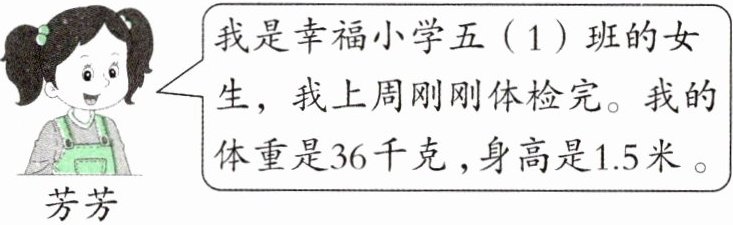 我是幸福小学五（1）班的女
生，我上周刚刚体检完。我的
体重是36千克，身高是1.5米。
芳芳